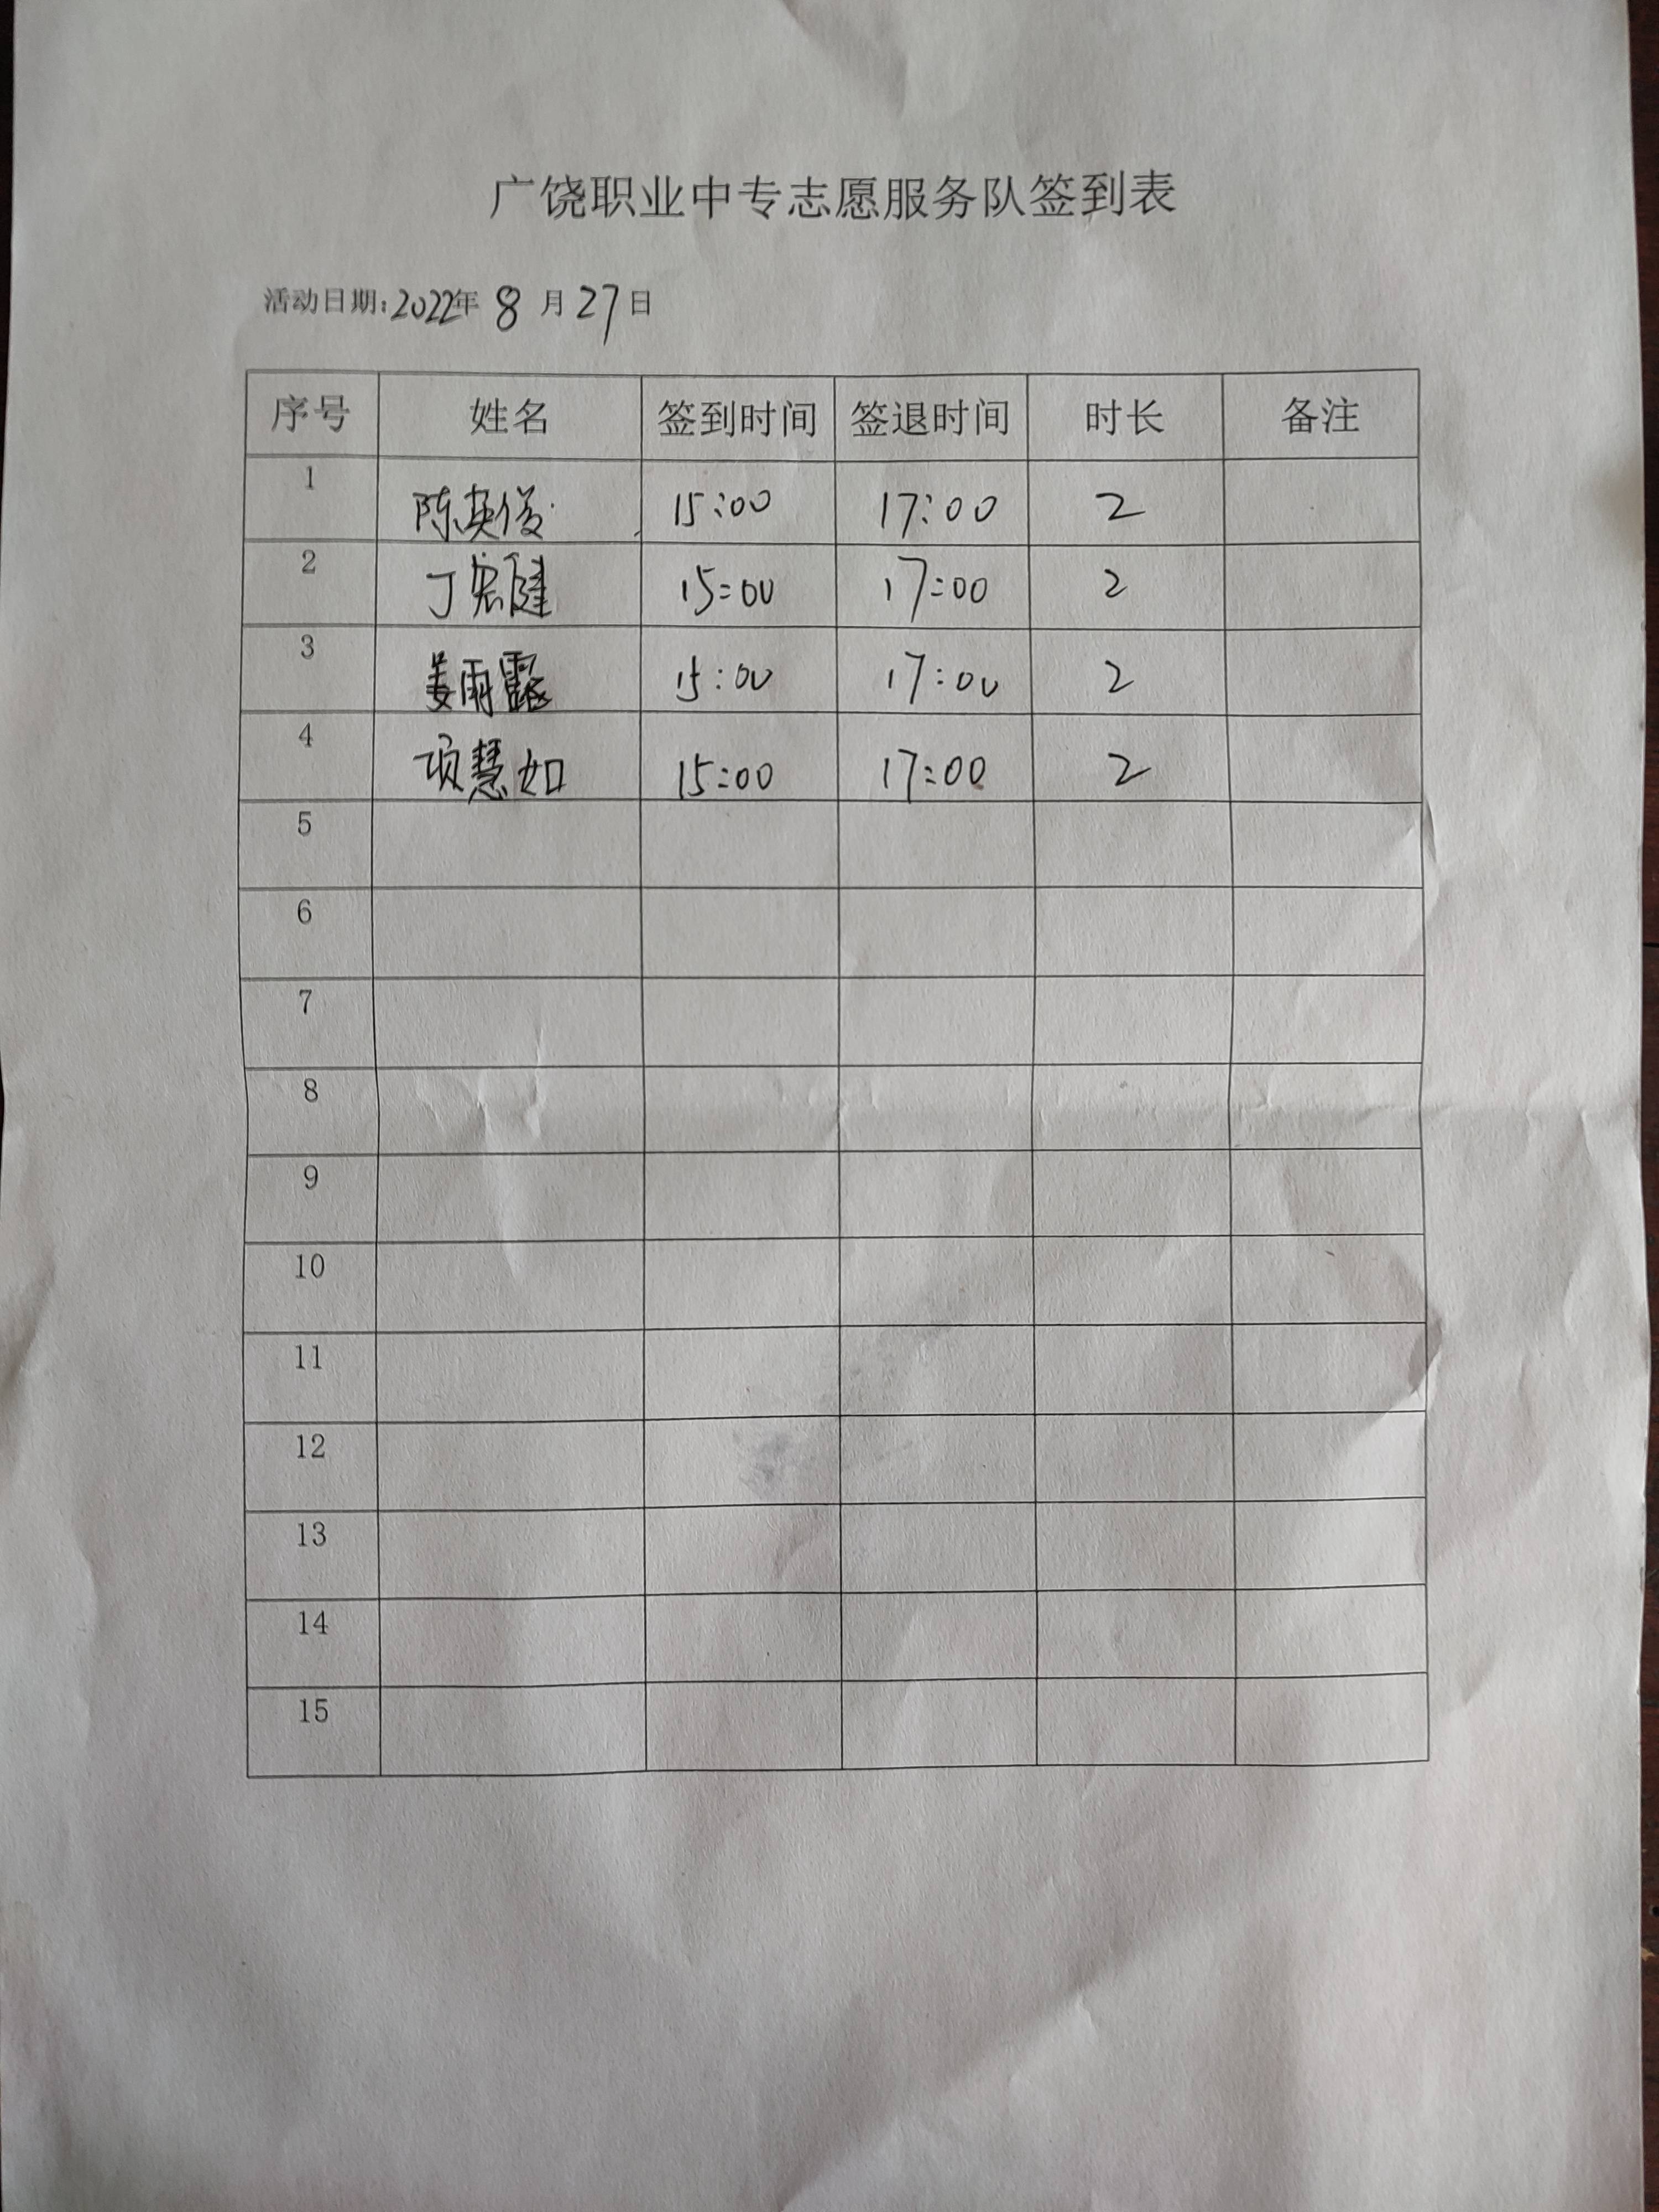 广饶职业中专志愿服务队签到表
活动日期:2022年 8 月 27 日
序号 姓名 签到时间 签退时间 时长 备注
1 陈英俊 15:00 17:00 2
2 丁宏健 15:00 17:00 2
3 姜雨露 15:00 17:00 2
4 项慧如 15:00 17:00 2
5
6
7
8
9
10
11
12
13
14
15